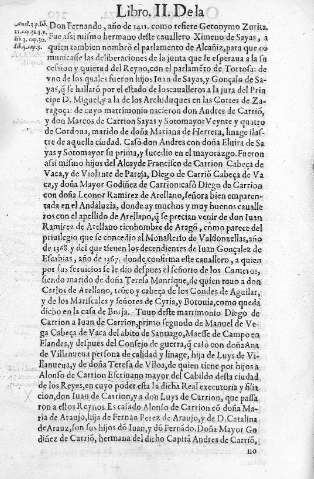 Libro. II. De la
Don Fernando, año de 1412. como refiere Geronymo Zurita.
Fue assi mismo hermano deste cauallero Ximeno de Sayas, a
quien tambien nombrò el parlamento de Alcañiz, para que co
municasse las deliberaciones de la junta que le esperaua a la su
cession y quietud del Reyno, con el parlamẽto de Tortosa: de
vno de los quales fueron hijos Iuan de Sayas, y Gonçalo de Sa-
yas, q̃ se hallarõ por el estado de los caualleros a la jura del Prin
cipe D. Miguel, y a la de los Archiduques en las Cortes de Za-
ragoça: de cuyo matrimonio nacieron don Andres de Carriõ,
y don Marcos de Carrion Sayas y Sotomayor Veynte y quatro
de Cordoua, marido de doña Mariana de Herrera, linage ilus-
tre de aquella ciudad. Casò don Andres con doña Eluira de Sa-
yas y Sotomayor su prima, y sucedio en el mayorazgo. Fueron
assi mismo hijos del Alcayde Francisco de Carrion Cabeça de
Vaca, y de Violante de Pareja, Diego de Carriõ Cabeça de Va
ca, y doña Mayor Godiñez de Carrion: casò Diego de Carrion
con doña Leonor Ramirez de Arellano, señora bien emparen-
tada en el Andaluzia, donde ay muchos y muy buenos caualle
ros con el apellido de Arellano, q̃ se precian venir de don Iuan
Ramirez de Arellano ricohombre de Aragõ, como parece del
priuilegio que se concedio al Monasterio de Valdonsellas, año
de 1368. y del que tienen los decendientes de Iuan Gonçalez de
Escabias, año de 1367. donde confirma este cauallero, a quien
por sus seruicios se le dio despues el señorio de los Cameros,
siendo marido de doña Teresa Manrique, de quien tuuo a don
Carlos de Arellano, tronco y cabeça de los Condes de Aguilar,
y de los Mariscales y señores de Cyria, y Borouia, como queda
dicho en la casa de Borja. Tuuo deste matrimonio Diego de
Carrion a Iuan de Carrion, primo segundo de Manuel de Ve-
ga Cabeça de Vaca del abito de Santiago, Maesse de Campo en
Flandes, y despues del Consejo de guerra, q̃ casò con doña Ana
de Villanueua persona de calidad y linage, hija de Luys de Vi-
llanueua, y de doña Teresa de Villos, de quien tiene por hijos a
Alonso de Carrion Escriuano mayor del Cabildo desta ciudad
de los Reyes, en cuyo poder esta la dicha Real executoria y filia
cion, don Iuan de Carrion, y a don Luys de Carrion, que passa
ron a estos Reynos. Es casado Alonso de Carrion cõ doña Ma-
ria de Araujo, hija de Fernan Perez de Araujo, y de D. Catalina
de Arauz, son sus hijos dõ Iuan, y dõ Fernãdo. Doña Mayor Go
diñez de Carriõ, hermana del dicho Capitã Andres de Carriõ,
no